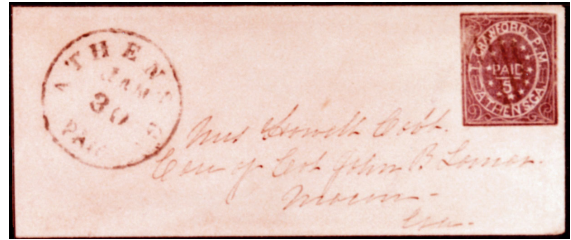 ATHENS
JAN
30
PAID
T. CRAWFORD, P.M.
PAID
5
ATHENS GA
Mrs Howell Cobb.
Care of Col John B Lamar.
Macon